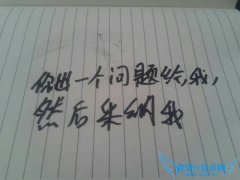 你出一个问题给我,
然后采纳我